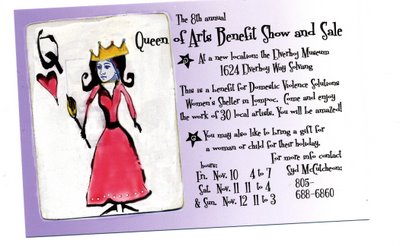 Q
The 8th annual
Queen of Arts Benefit Show and Sale
At a new location: the Elverhoy Museum
1624 Elverhoy Way Solvang
This is a benefit for Domestic Violence Solutions
Women's Shelter in Lompoc. Come and enjoy
the work of 30 local artists. You will be amazed!
You may also like to bring a gift for
a woman or child for their holiday.
For more info contact
Syd McCutcheon:
805-
688-6860
hours:
Fri. Nov. 10 4 to 7
Sat. Nov. 11 11 to 4
& Sun. Nov. 12 11 to 3